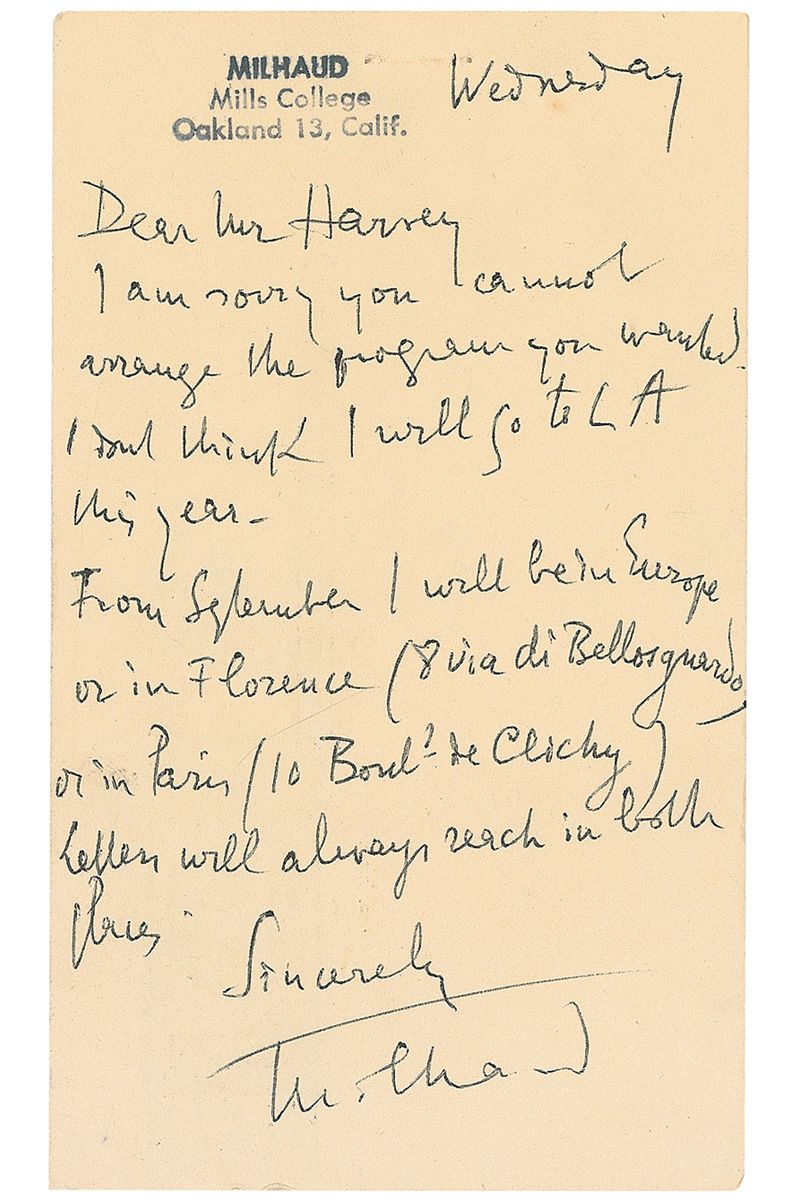 MILHAUD
Mills College
Oakland 13, Calif.
Wednesday
Dear Mr Harvey
I am sorry you cannot
arrange the program you wanted.
I dont think I will go to L A
this year-
From September I will be in Europe
or in Florence (8 via di Bellosguardo)
or in Paris (10 Boul? de Clichy)
Letters will always reach in both
places.
Sincerely
Milhaud